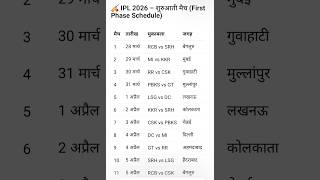 🏏 IPL 2026 – शुरुआती मैच (First Phase Schedule)
मैच तारीख मुकाबला जगह
1 28 मार्च RCB vs SRH बेंगलुरु
2 29 मार्च MI vs KKR मुंबई
3 30 मार्च RR vs CSK गुवाहाटी
4 31 मार्च PBKS vs GT मुल्लांपुर
5 1 अप्रैल LSG vs DC लखनऊ
6 2 अप्रैल KKR vs SRH कोलकाता
7 3 अप्रैल CSK vs PBKS चेन्नई
8 4 अप्रैल DC vs MI दिल्ली
9 4 अप्रैल GT vs RR अहमदाबाद
10 5 अप्रैल SRH vs LSG हैदराबाद
11 5 अप्रैल RCB vs CSK बेंगलुरु